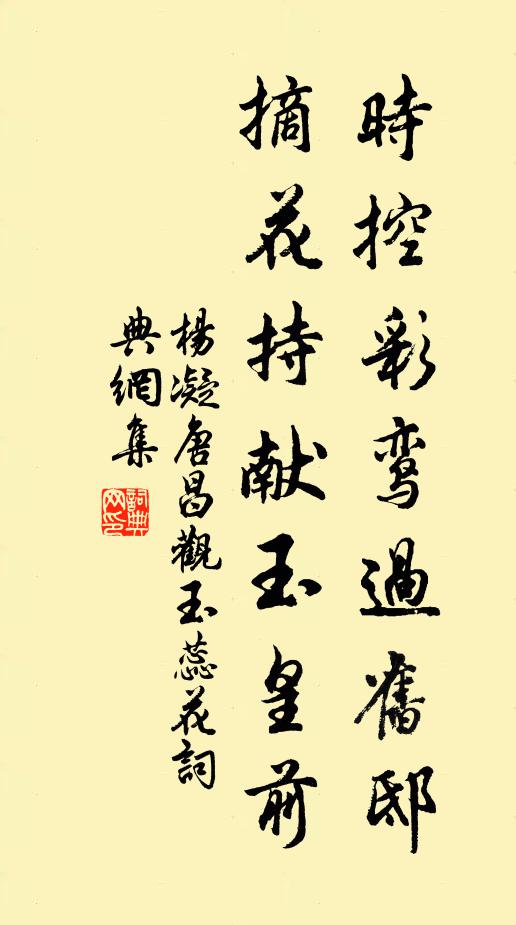 時控彩鸾過舊邸
摘花持献玉皇前
楊凝唐昌觀玉蕊花詞
典網集
詞典
网印